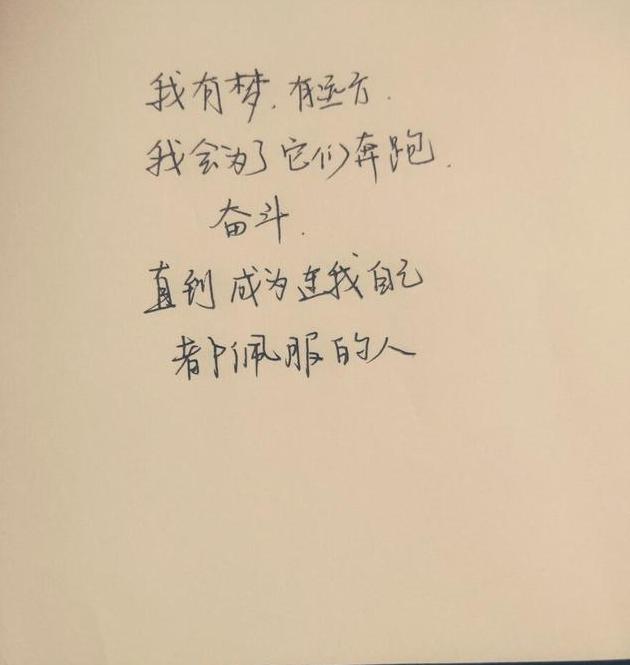 我有梦.有远方.
我会为了它们奔跑.
奋斗.
直到成为连我自己
都佩服的人